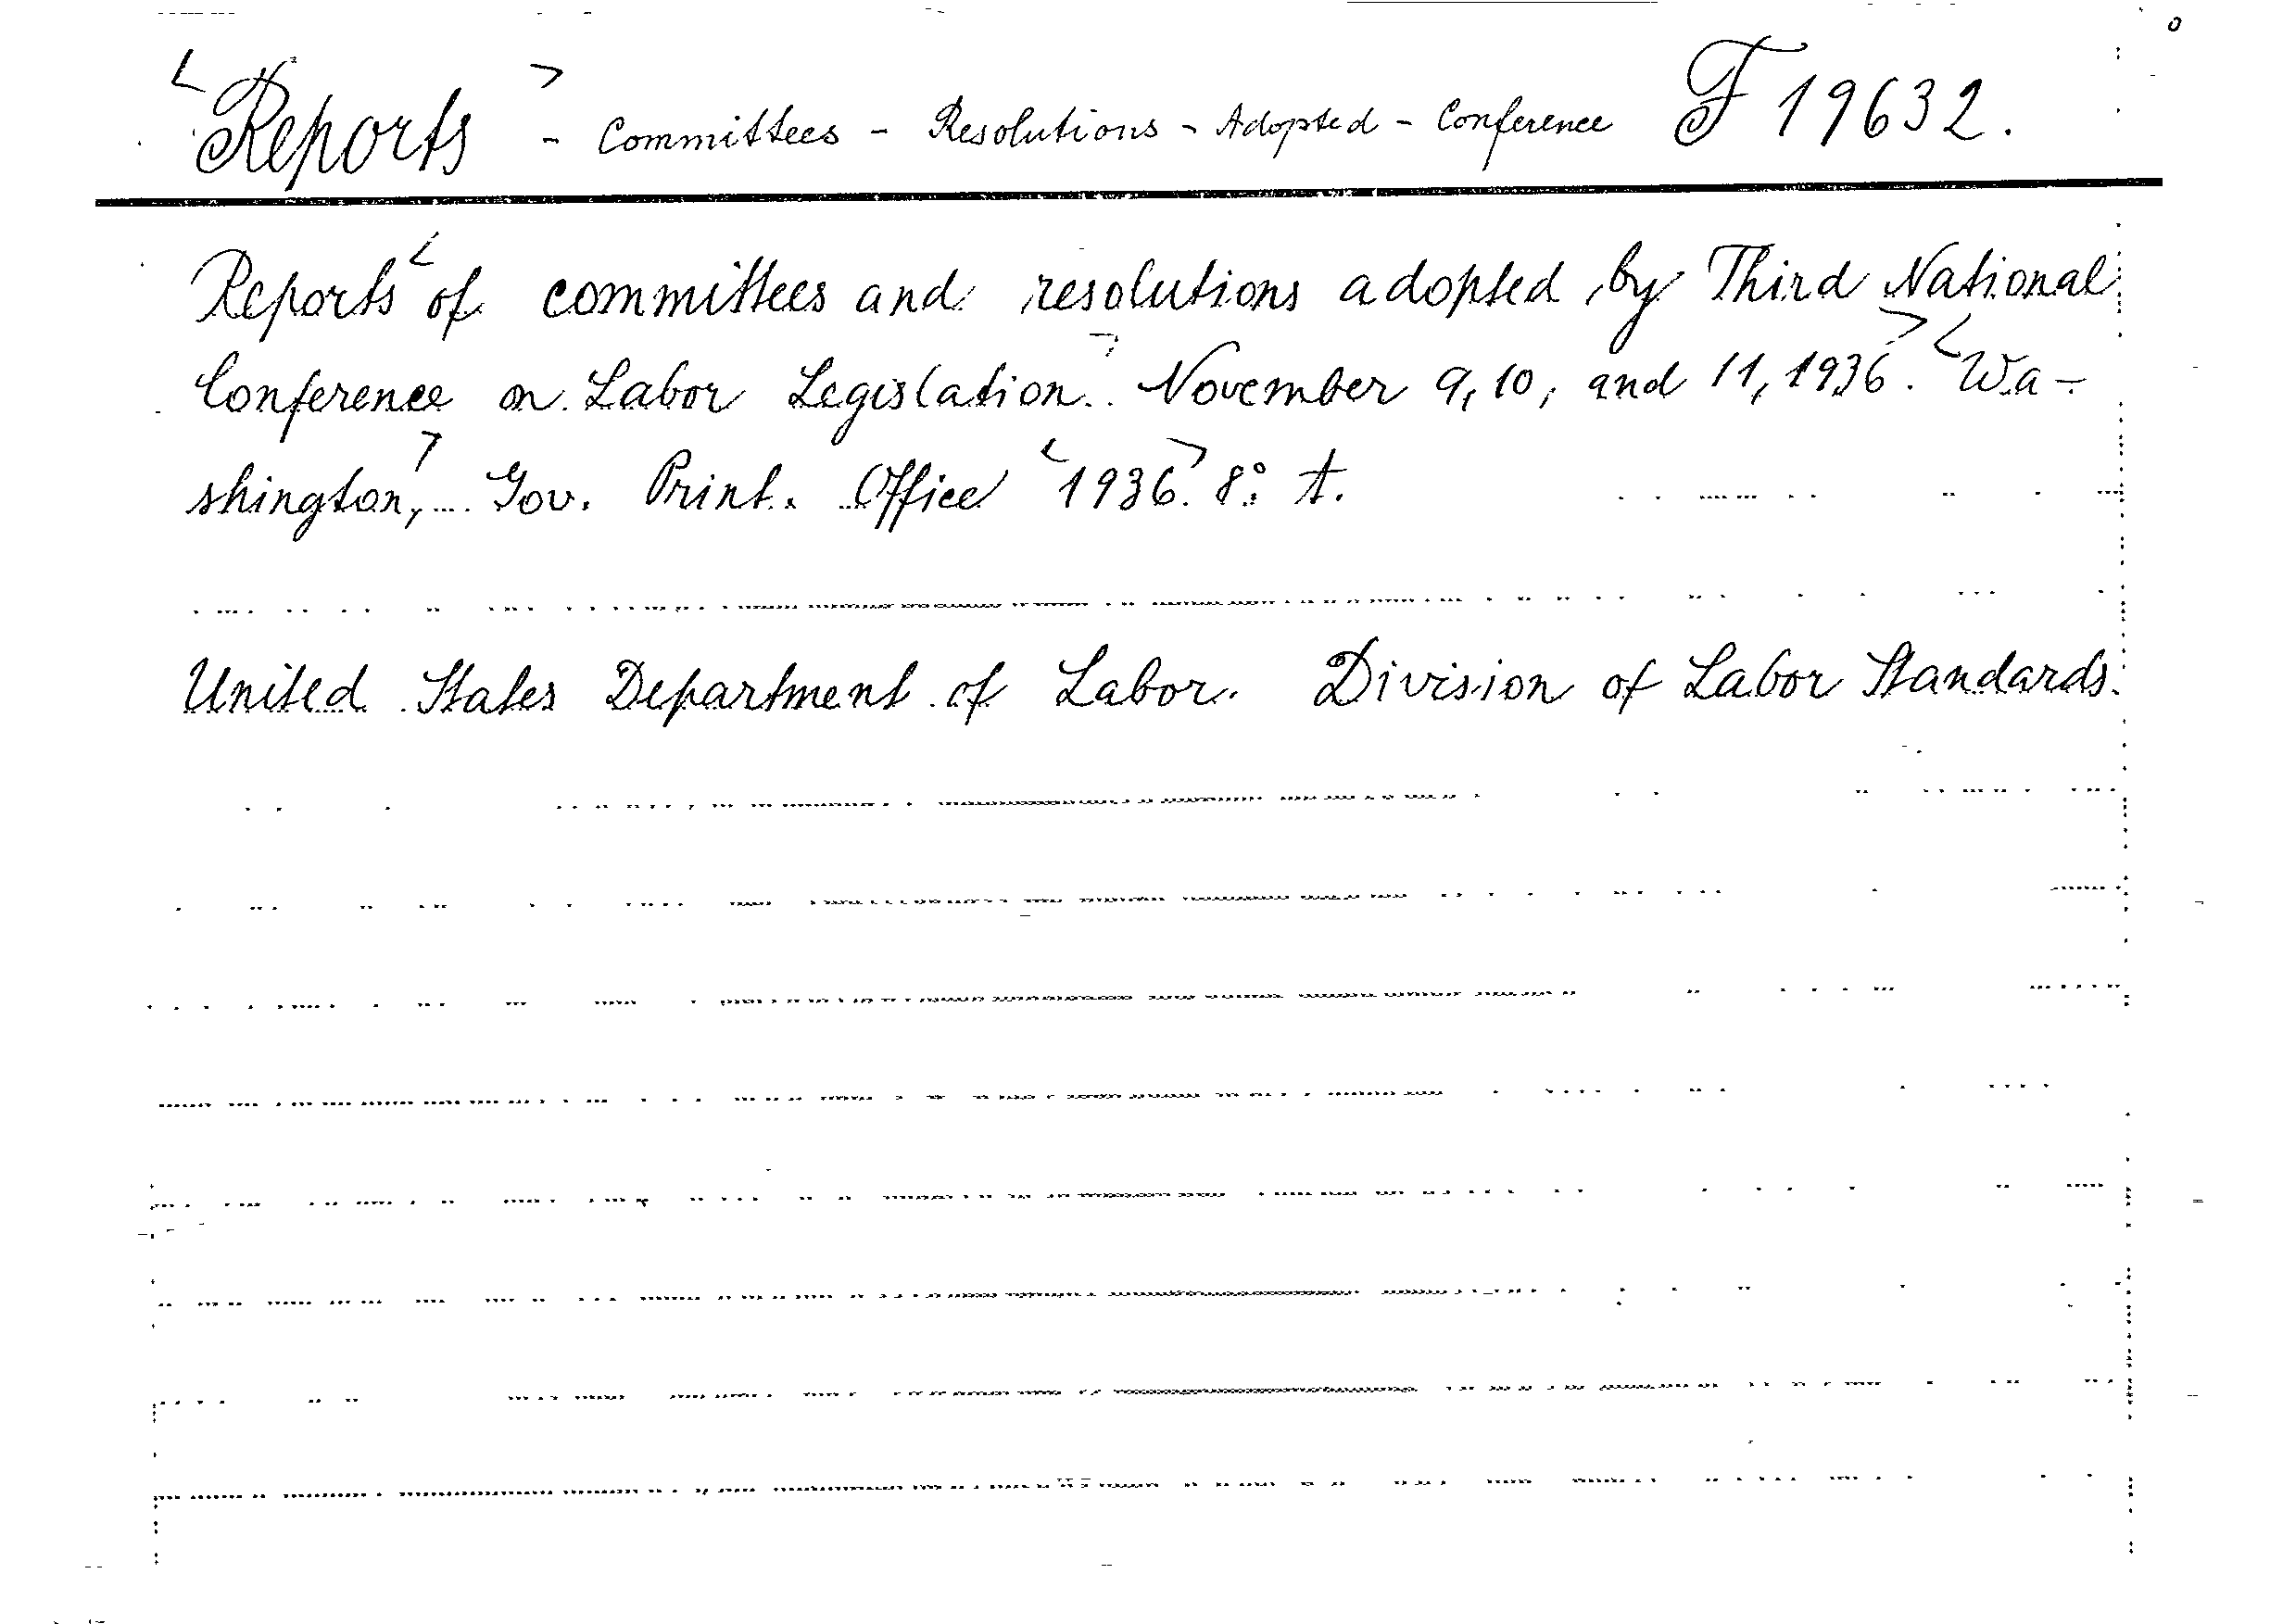 <Reports> - Committees - Resolutions - Adopted - Conference F 19632.
Reports < of committees and resolutions adopted by Third National
Conference on Labor Legislation.> November 9, 10, and 11, 1936.> <Wa-
shington,> Gov. Print. Office <1936.> 8° t.
United States Department of Labor. Division of Labor Standards.